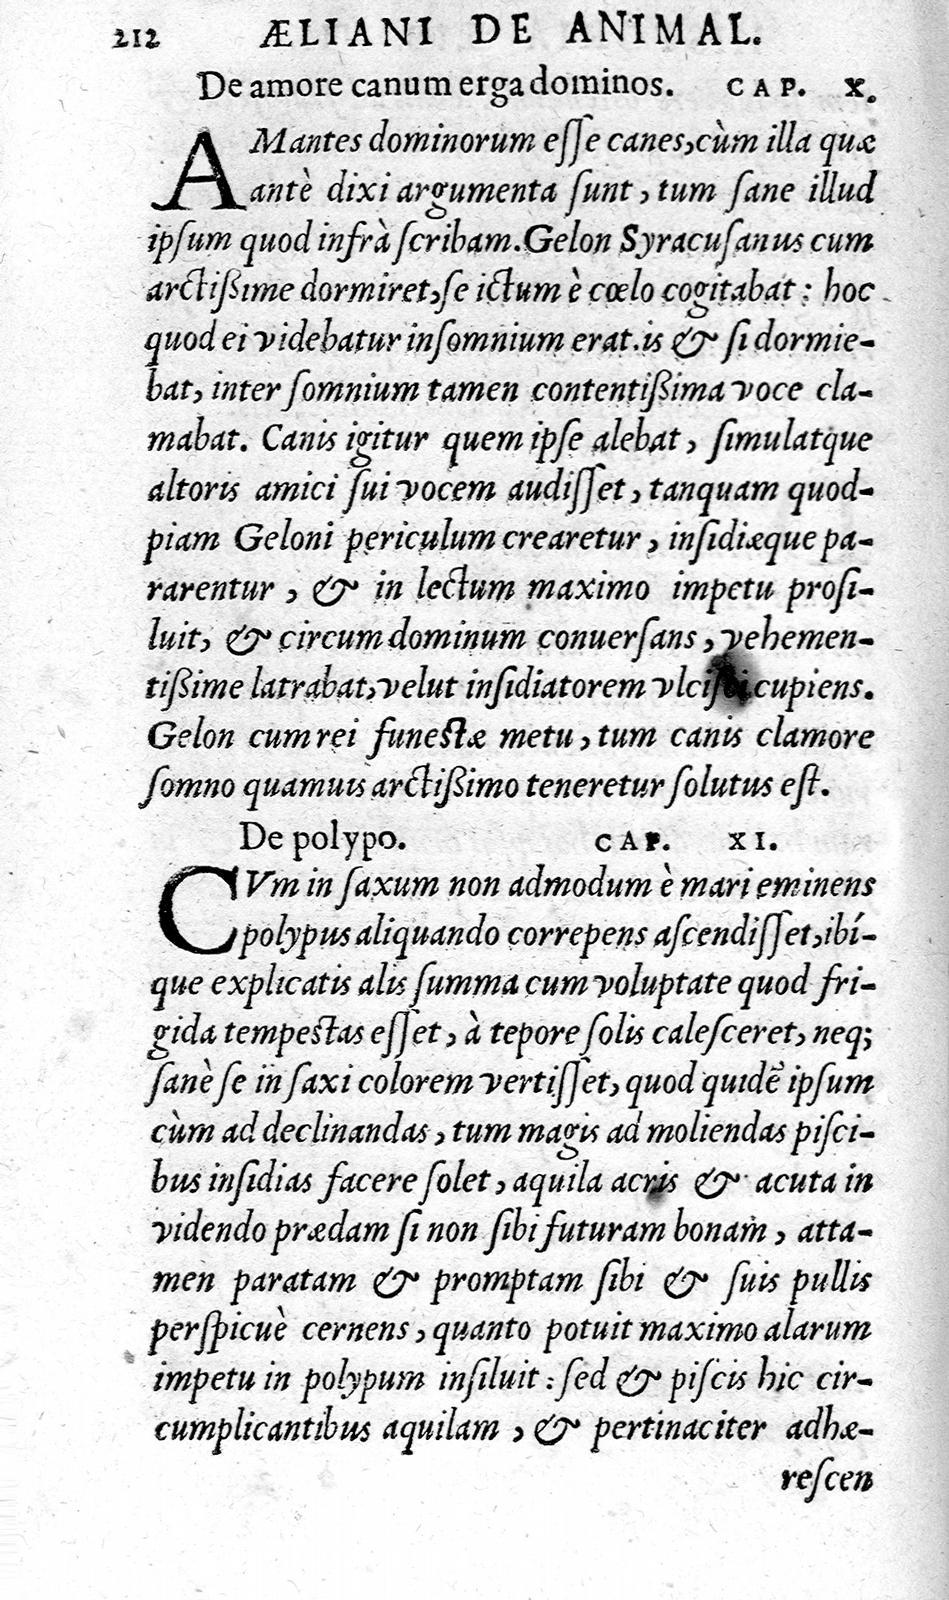 212 ÆLIANI DE ANIMAL.
De amore canum erga dominos. CAP. X.
AMantes dominorum eſſe canes, cùm illa quæ
antè dixi argumenta ſunt, tum ſane illud
ipſum quod infrà ſcribam. Gelon Syracuſanus cum
arctißime dormiret, ſe ictum è cœlo cogitabat: hoc
quod ei videbatur inſomnium erat. is & ſi dormie-
bat, inter ſomnium tamen contentißima voce cla-
mabat. Canis igitur quem ipſe alebat, ſimulatque
altoris amici ſui vocem audiſſet, tanquam quod-
piam Geloni periculum crearetur, inſidiæque pa-
rarentur, & in lectum maximo impetu proſi-
luit, & circum dominum conuerſans, vehemen-
tißime latrabat, velut inſidiatorem vlciſci cupiens.
Gelon cum rei funeſtæ metu, tum canis clamore
ſomno quamuis arctißimo teneretur ſolutus eſt.
De polypo. CAP. XI.
CVm in ſaxum non admodum è mari eminens
polypus aliquando correpens aſcendiſſet, ibí-
que explicatis alis ſumma cum voluptate quod fri-
gida tempeſtas eſſet, à tepore ſolis caleſceret, neq;
ſanè ſe in ſaxi colorem vertiſſet, quod quidẽ ipſum
cùm ad declinandas, tum magis ad moliendas piſci-
bus inſidias facere ſolet, aquila acris & acuta in
videndo prædam ſi non ſibi futuram bonam, atta-
men paratam & promptam ſibi & ſuis pullis
perſpicuè cernens, quanto potuit maximo alarum
impetu in polypum inſiluit: ſed & piſcis hic cir-
cumplicantibus aquilam, & pertinaciter adhæ-
reſcen